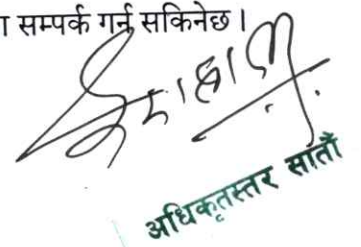 ा सम्पर्क गर्न सकिनेछ।
अधिकृतस्तर सातौं